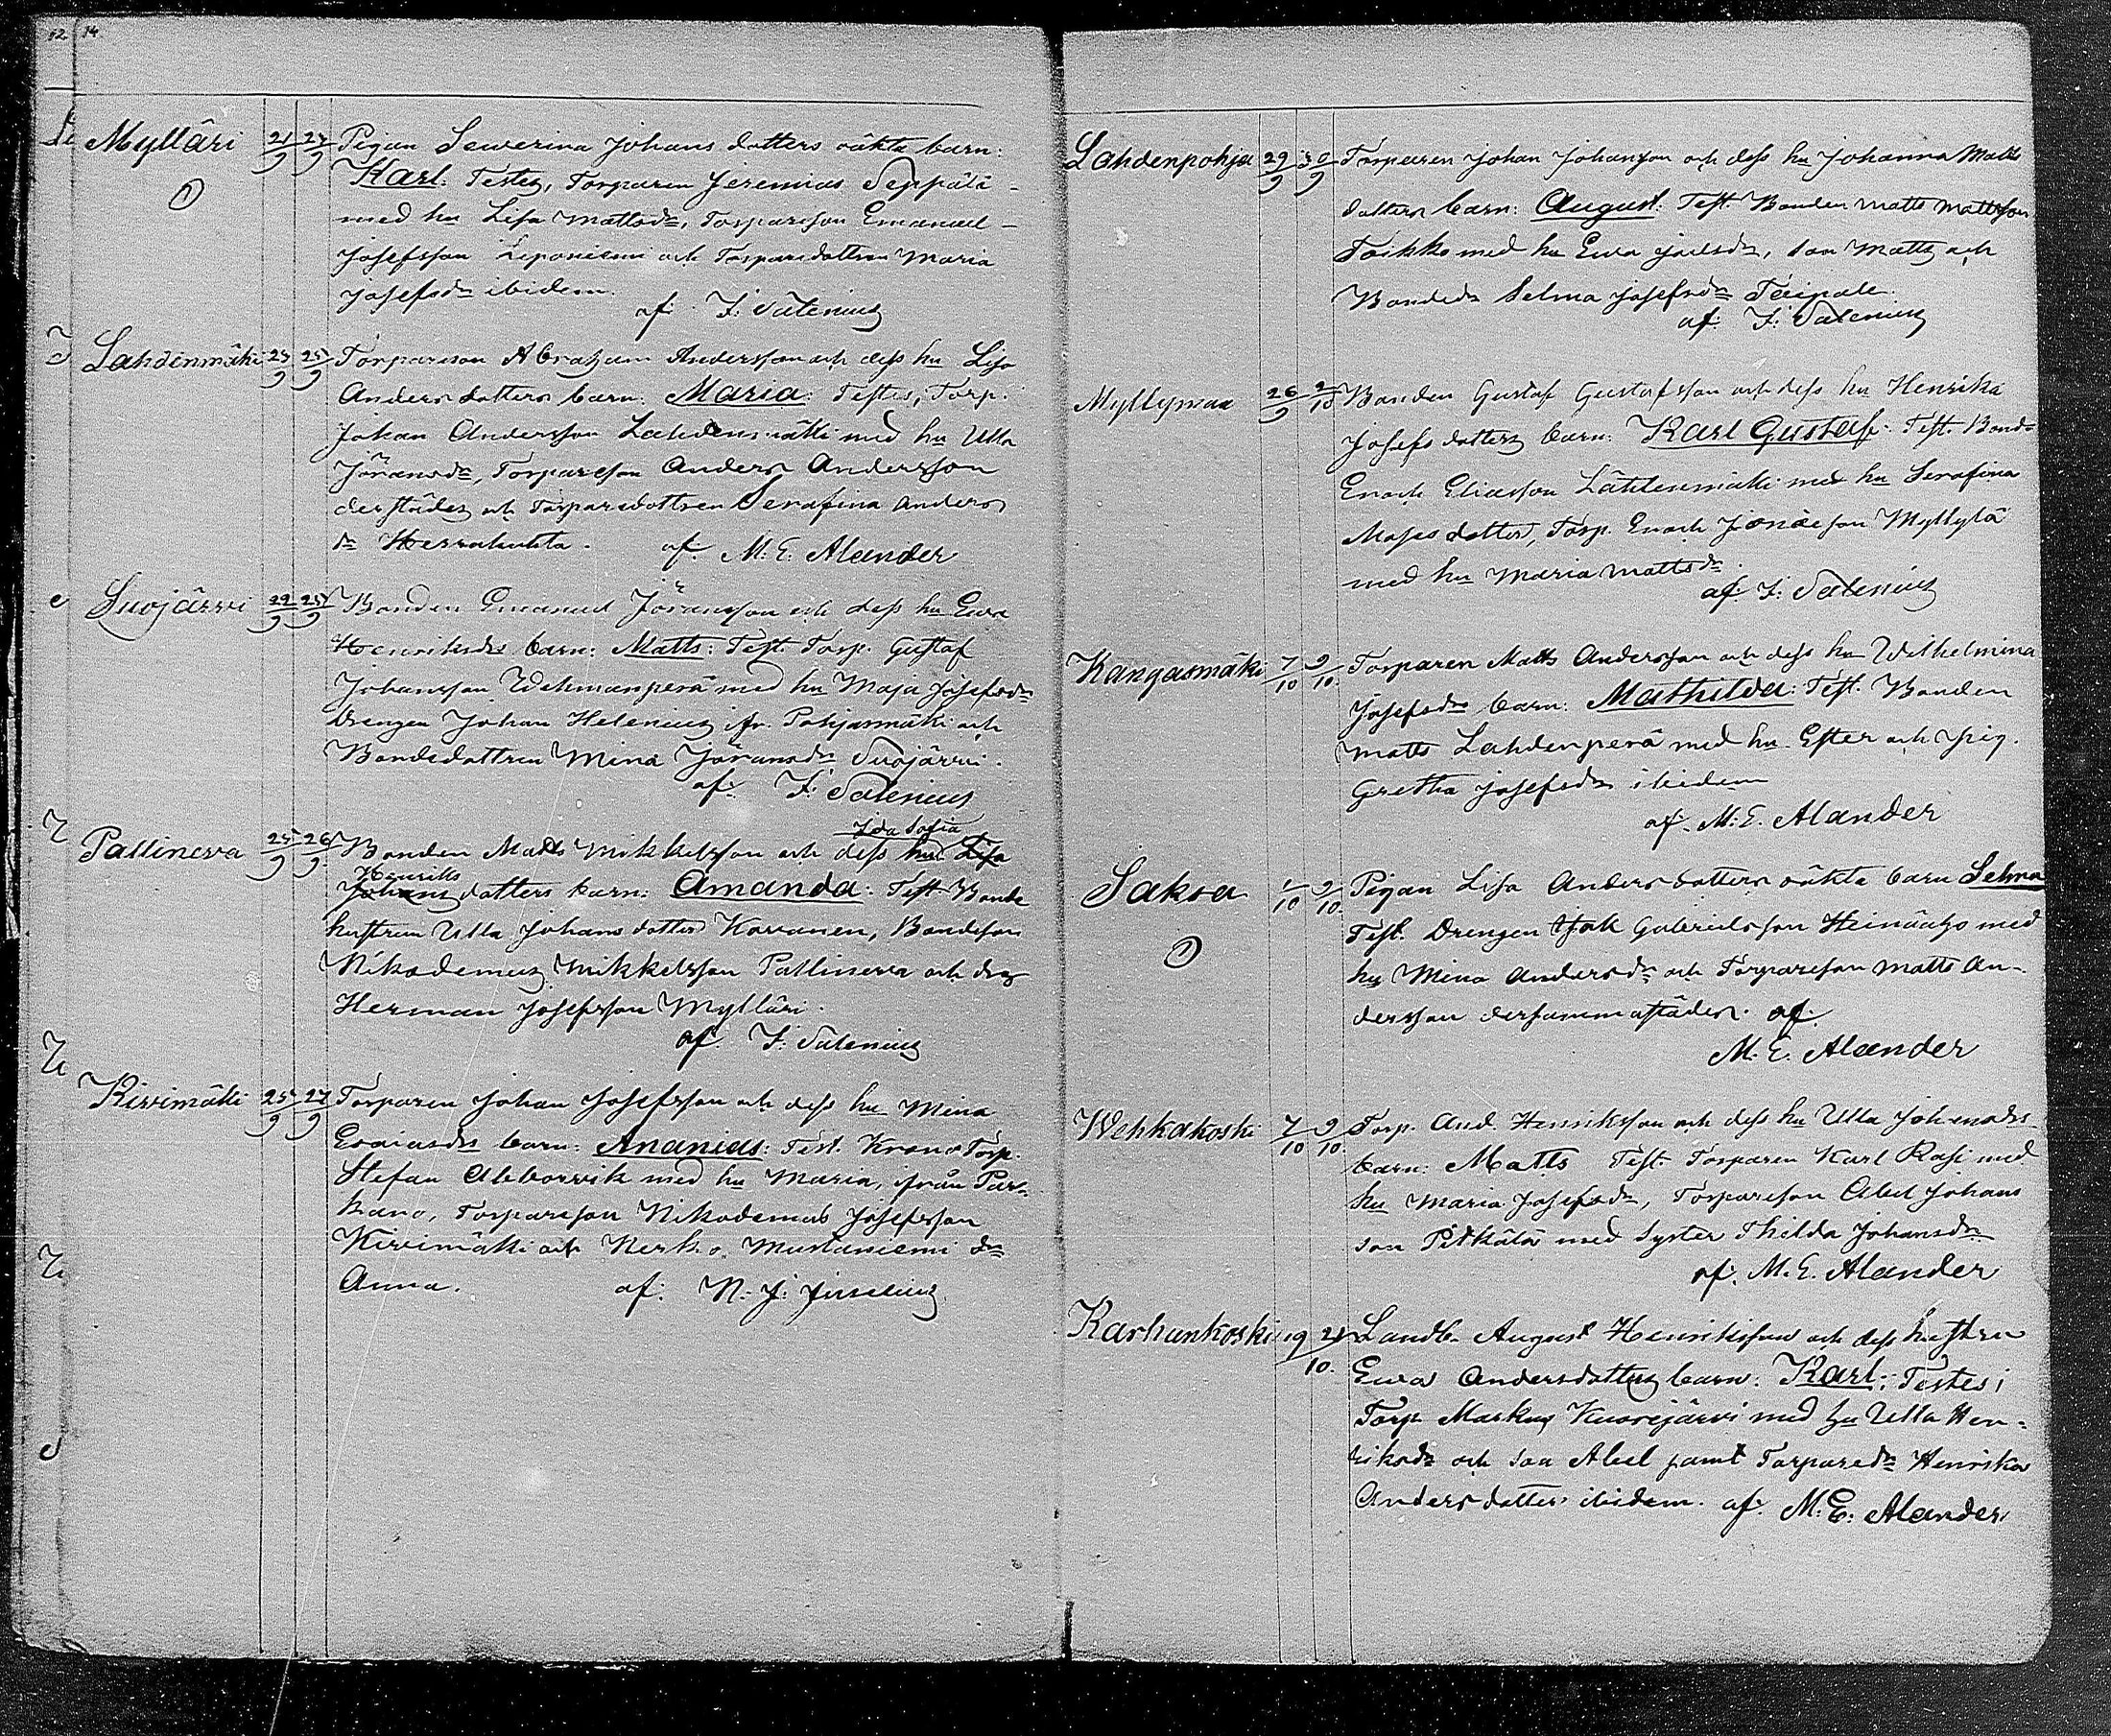 12 14
Mylläri 21/9 27/9 Pigan Sewerina Johans dotters oäkta barn:
Karl: Testes, Torparen Jeremias Seppälä
med hu Lisa Mattsdr, Torpareson Emanuel
Josefsson Leponiemi och Torparedottren Maria
Josefsdr ibidem.
af. F: Salenius
Lahdenmäki 23/9 25/9 Torpareson Abraham Andersson och dess hu Lisa
Anders dotters barn: Maria: Testes, Torp.
Johan Andersson Lahdenmäki med hu Ulla
Jöransdr, Torpareson Anders Andersson
derstädes och Torparedottren Serafina Anders
dr Herrakukta. af. M. E. Alander
Suojärvi 22/9 25/9 Bonden Emanuel Jöransson och dess hu Ewa
Henriksdrs barn: Matts: Test. Torp. Gustaf
Johansson Wehmanperä med hu Maja Josefsdr
Drengen Johan Helenius ifr. Pohjasmäki och
Bondedottren Mina Jöransdr Suojärvi.
af. F: Salenius
Ida Sofia
Pallineva 25/9 26/9 Bonden Matts Mikkelsson och dess hu Lisa
Henriks
Johans dotters barn: Amanda: Test Bonde
hustrun Ulla Johans dotter Korvanen, Bondeson
Nikodemus Mikkelsson Pallineva och drg
Herman Josefsson Mylläri.
af F: Salenius
Kivimäki 25/9 27/9 Torparen Johan Josefsson och dess hu Mina
Esaiasdrs barn: Ananias: Test. Krono Torp.
Stefan Abborrvik med hu Maria, ifrån Par-
kano, Torpareson Nikodemus Josefsson
Kivimäki och Nerko, Mustaniemi dr
Anna. af. N. J. Juselius
Lahdenpohja 29/9 30/9 Torparen Johan Johansson och dess hu Johanna Matts
dotters barn: August: Test. Bonden Matts Mattsson
Toikko med hu Ewa Joelsdr, son Matts och
Bondedr Selma Josefsdr Taipale.
af. F: Salenius
Myllymaa 26/9 2/10 Bonden Gustaf Gustafsson och dess hu Henrika
Josefs dotters barn: Karl Gustaf: Test. Bond.
Enoch Eliasson Lähdenmäki med hu Serafina
Moses dotter, Torp. Enoch Jonæson Myllylä
med hu Maria Mattsdr.
af. F: Salenius
Kangasmäki 7/10 9/10. Torparen Matts Andersson och dess hu Wilhelmina
Josefsdrs barn: Mathilda: Test. Bonden
Matts Lahdenperä med hu Ester och pig.
Gretha Josefsdr ibidem
af. M. E. Alander
Saksa 1/10 9/10. Pigan Lisa Anders dotters oäkta barn Selma
Test. Drengen Isak Gabrielsson Heinäaho med
hu Mina Andersdr och Torpareson Matts An-
dersson dersammastädes. af.
M. E. Alander
Wehkakoski 7/10 9/10. Torp. And. Henriksson och dess hu Ulla Johansdrs
barn: Matts Test. Torparen Karl Rasi med
hu Maria Josefsdr, Torpareson Abel Johans
son Pitkälä med Syster Thilda Johansdr
af. M. E. Alander
Karhunkoski 19 21/10. Landb. August Henriksson och dess hustru
Ewa Andersdotters barn: Karl: Testes;
Torp Markus Kuorejärvi med hu Ulla Hen-
riksdr och son Abel samt Torparedr Henrika
Anders dotter ibidem. af. M. E. Alander